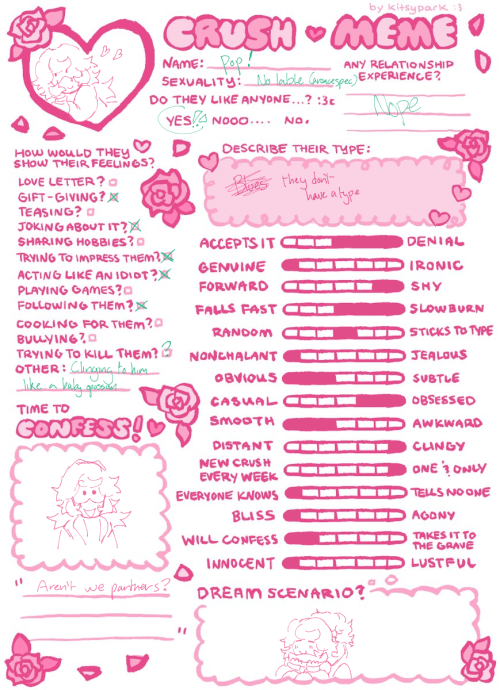 by kitsypark :3
CRUSH MEME
NAME: Pop!
SEXUALITY: No lable (aroacespec)
ANY RELATIONSHIP
EXPERIENCE?
Nope
DO THEY LIKE ANYONE...? :3c
YES!! NOOO.... NO.
HOW WOULD THEY
SHOW THEIR FEELINGS?
LOVE LETTER?
GIFT-GIVING?
TEASING?
JOKING ABOUT IT?
SHARING HOBBIES?
TRYING TO IMPRESS THEM?
ACTING LIKE AN IDIOT?
PLAYING GAMES?
FOLLOWING THEM?
COOKING FOR THEM?
BULLYING?
TRYING TO KILL THEM? ?
OTHER: Clinging to him
like a baby possum
DESCRIBE THEIR TYPE:
Blues they don't
have a type
ACCEPTS IT DENIAL
GENUINE IRONIC
FORWARD SHY
FALLS FAST SLOWBURN
RANDOM STICKS TO TYPE
NONCHALANT JEALOUS
OBVIOUS SUBTLE
CASUAL OBSESSED
SMOOTH AWKWARD
DISTANT CLINGY
NEW CRUSH
EVERY WEEK ONE & ONLY
EVERYONE KNOWS TELLS NO ONE
BLISS AGONY
WILL CONFESS TAKES IT TO
THE GRAVE
INNOCENT LUSTFUL
TIME TO
CONFESS!
" Aren't we partners?
"
DREAM SCENARIO?